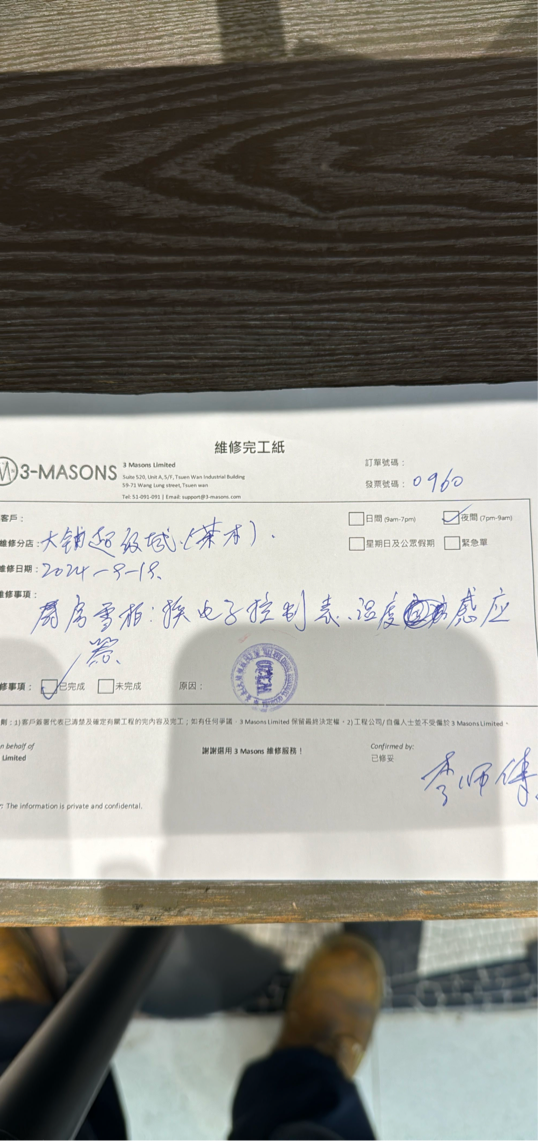 維修完工紙
3-MASONS
3 Masons Limited
Suite 520, Unit A, 5/F, Tsuen Wan Industrial Building
59-71 Wang Lung street, Tsuen wan
Tel: 51-091-091 | Email: support@3-masons.com
訂單號碼：
發票號碼： 0960
客戶：
日間 (9am-7pm) 夜間 (7pm-9am)
維修分店： 大
星期日及公眾假期 緊急單
維修日期： 2024-9-18.
維修事項：
廚房雪柜：换电子控制表、温度 感应
器.
修事項： 已完成 未完成 原因：
1)客戶簽署代表已清楚及確定有關工程的完內容及完工；如有任何爭議，3 Masons Limited 保留最終決定權。2)工程公司/自僱人士並不受僱於 3 Masons Limited。
n behalf of
Limited
謝謝選用 3 Masons 維修服務！
Confirmed by:
已修妥
李师傅
: The information is private and confidential.